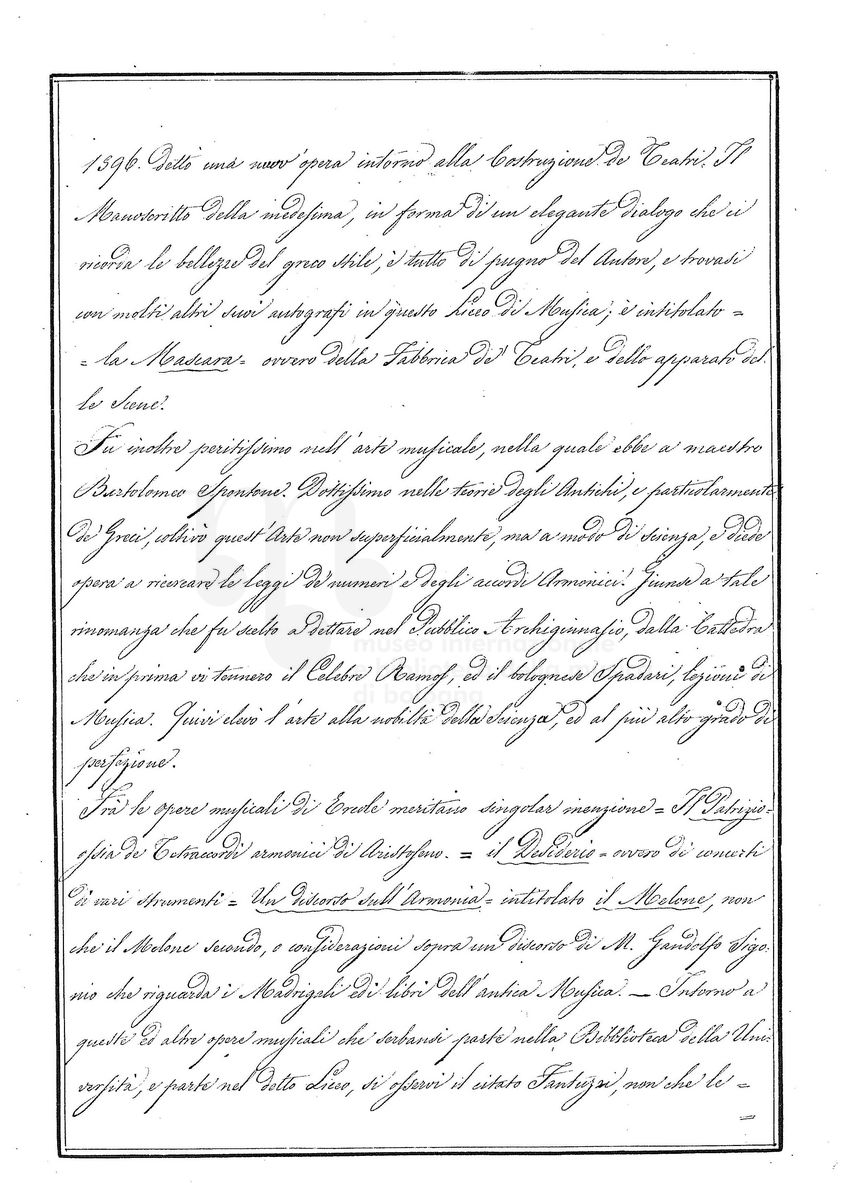 1596. dettò una nuov' opera intorno alla Costruzione de' Teatri. Il
Manoscritto della medesima, in forma di un elegante dialogo che ci
ricorda le bellezze del greco stile, è tutto di pugno del Autore, e trovasi
con molti altri suoi autografi in questo Liceo di Musica; è intitolato =
= la Mascara = ovvero della Fabbrica de' Teatri, e dello apparato del-
le Scene.
Fu inoltre peritissimo nell'arte musicale, nella quale ebbe a maestro
Bartolomeo Spontone. Dottissimo nelle teorie degli Antichi, e particolarmente
de' Greci, coltivò quest'Arte non superficialmente, ma a modo di scienza, e diede
opera a ricercare le leggi de' numeri e degli accordi Armonici. Giunse a tale
rinomanza che fu scelto a dettare nel Pubblico Archiginnasio, dalla Cattedra
che in prima vi tennero il Celebre Ramos, ed il bolognese Spadari, lezioni di
Musica. Quivi elevò l'arte alla nobiltà della Scienza, ed al più alto grado di
perfezione.
Frà le opere musicali di Ercole meritano singolar menzione = Il Patrizio =
ossia de' Tetracordi armonici di Aristoseno. = il Desiderio = ovvero di concerti
di vari strumenti = Un discorso sull'Armonia = intitolato il Melone, non
che il Melone secondo, o considerazioni sopra un discorso di M. Gandolfo Sigo-
nio che riguarda i Madrigali ed i libri dell'antica Musica. — Intorno a
queste ed altre opere musicali che serbansi parte nella Bibblioteca della Uni-
versità, e parte nel detto Liceo, si osservi il citato Fantuzzi, non che le =
museo internazionale
e biblioteca della musica
di bologna